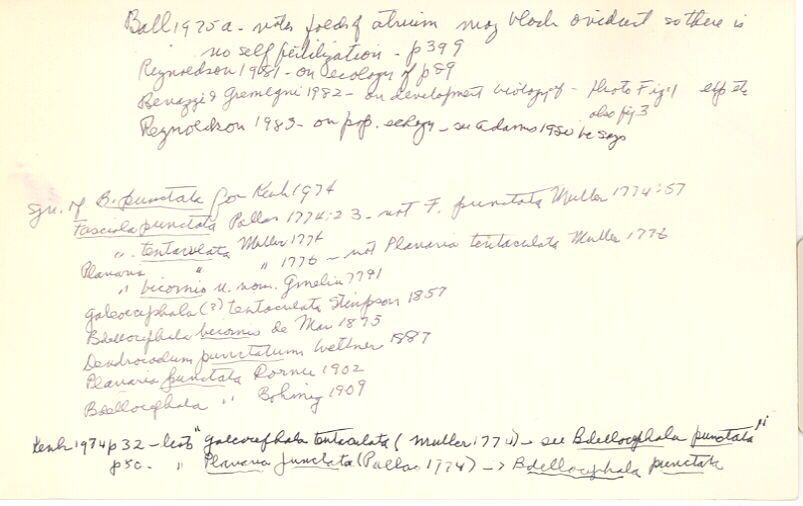 Ball 1975a - notes folds of atrium may block oviduct so there is
no self fertilization - p 399
Reynoldson 1981 - on ecology of p 89
Benazzi & Gremigni 1982 - on development biology of - Photo Fig 1
also fig 3
Reynoldson 1983 - on pop. ecology - see Adams 1980 he says
syn. of B. punctata for Kenk 1974
Fasciola punctata Pallas 1774:23 - not F. punctata Muller 1774:57
" tentaculata Muller 1774
Planaria " " 1776 - not Planaria tentaculata Muller 1776
" bicornis n. nom. Gmelin 1791
Galeocephala (?) tentaculata Stimpson 1857
Bdellocephala bicornis de Man 1875
Dendrocoelum punctatum Weltner 1887
Planaria punctata Dorner 1902
Bdellocephala " Bohmig 1909
Kenk 1974 p 32 - lists "Galeocephala tentaculata (Muller 1774) - see Bdellocephala punctata"
p50. " Planaria punctata (Pallas 1774) -> Bdellocephala punctata